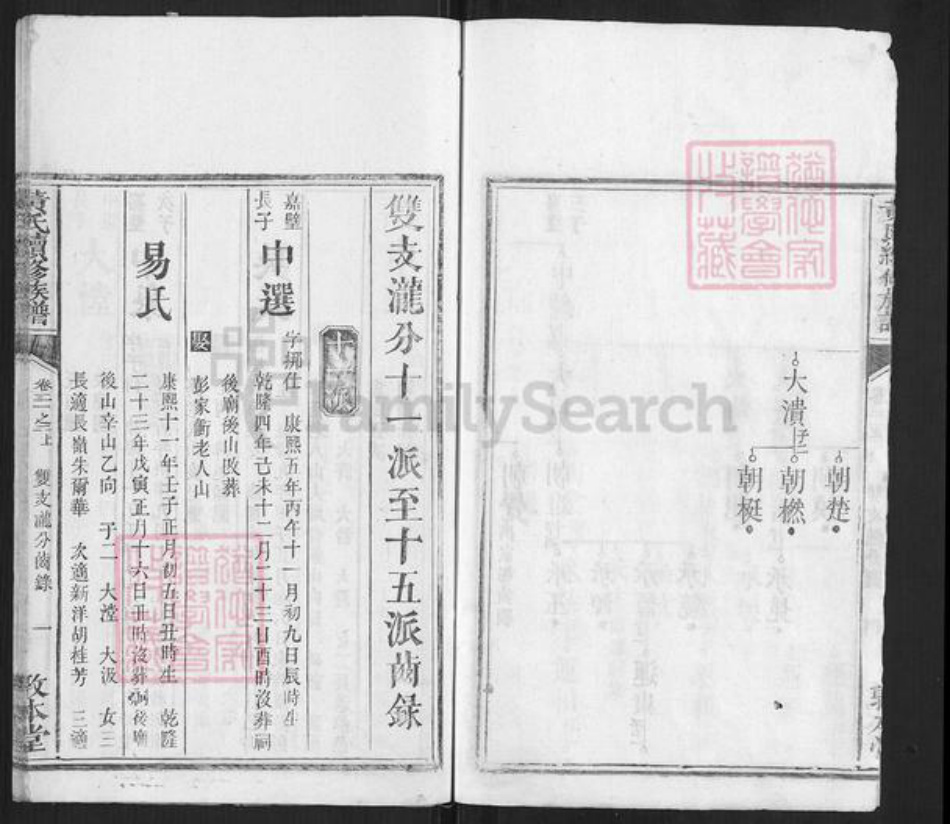 大潰 子三
朝楚
朝橪
朝梃
雙支瀧分十一派至十五派齒錄
十一派
嘉壁長子
中選
字挪仕 康熙五年丙午十一月初九日辰時生
乾隆四年己未十二月二十三日酉時沒葬祠
後廟後山改葬
彭家衝老人山
娶
易氏
康熙十一年壬子正月初五日丑時生 乾隆
二十三年戊寅正月十六日丑時沒葬祠後廟
後山辛山乙向 子二 大瀅 大汲 女三
長適長嶺朱爾華 次適新洋胡桂芳 三適
黃氏續修族譜
卷二之上 雙支瀧分齒錄 一
敦本堂
FamilySearch